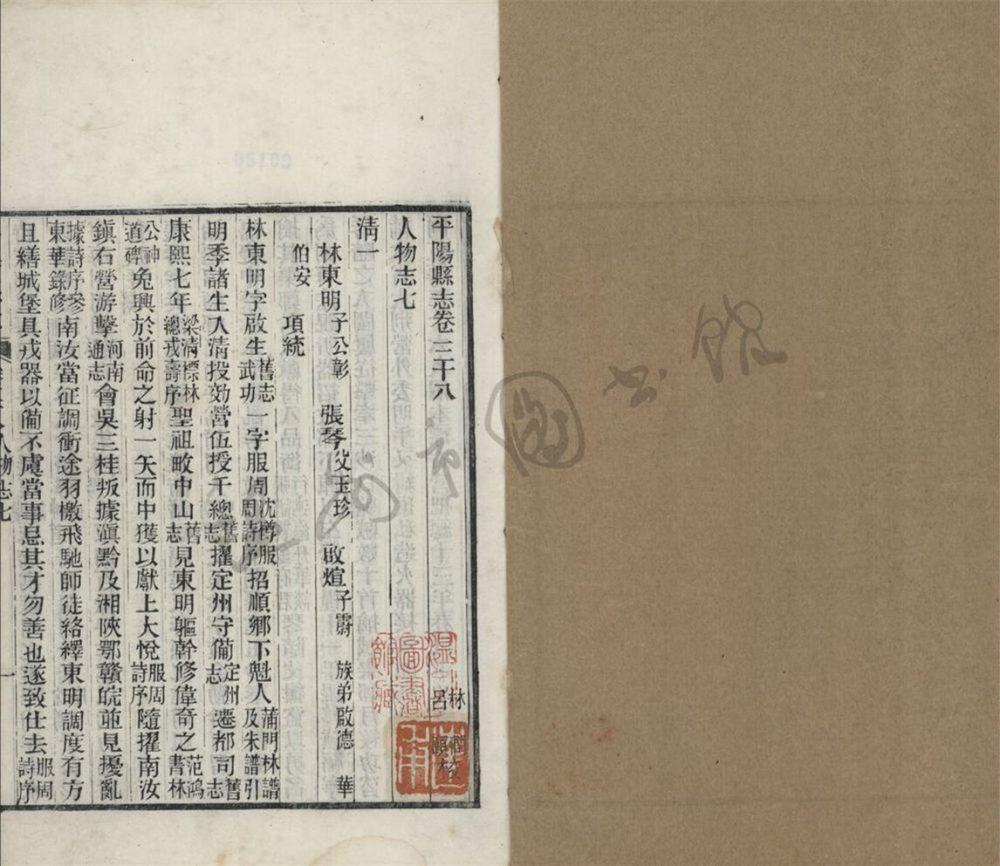 平陽縣志卷三十八
人物志七
清一
林東明子公彰 張琴父玉珍 啟煊子霨 族弟啟德 華
伯安 項統 林呂
林東明字啟生舊志武功一字服周沈樽服周詩序招順鄉下魁人蒲門林譜及朱譜引
明季諸生入清投効營伍授千總舊志擢定州守備定州志遷都司舊志
康熙七年梁清標林總戎壽序聖祖畋中山舊志見東明軀幹修偉奇之范鴻書林
公神道碑免興於前命之射一矢而中獲以獻上大悅服周詩序隨擢南汝
鎮右營游擊河南通志會吳三桂叛據滇黔及湘陝鄂贛皖並見擾亂
據詩序參東華錄修南汝當征調衝途羽檄飛馳師徒絡繹東明調度有方
且繕城堡具戎器以備不虞當事忌其才勿善也遂致仕去服周詩序
人物志七
一
圖書
館藏
圖書館